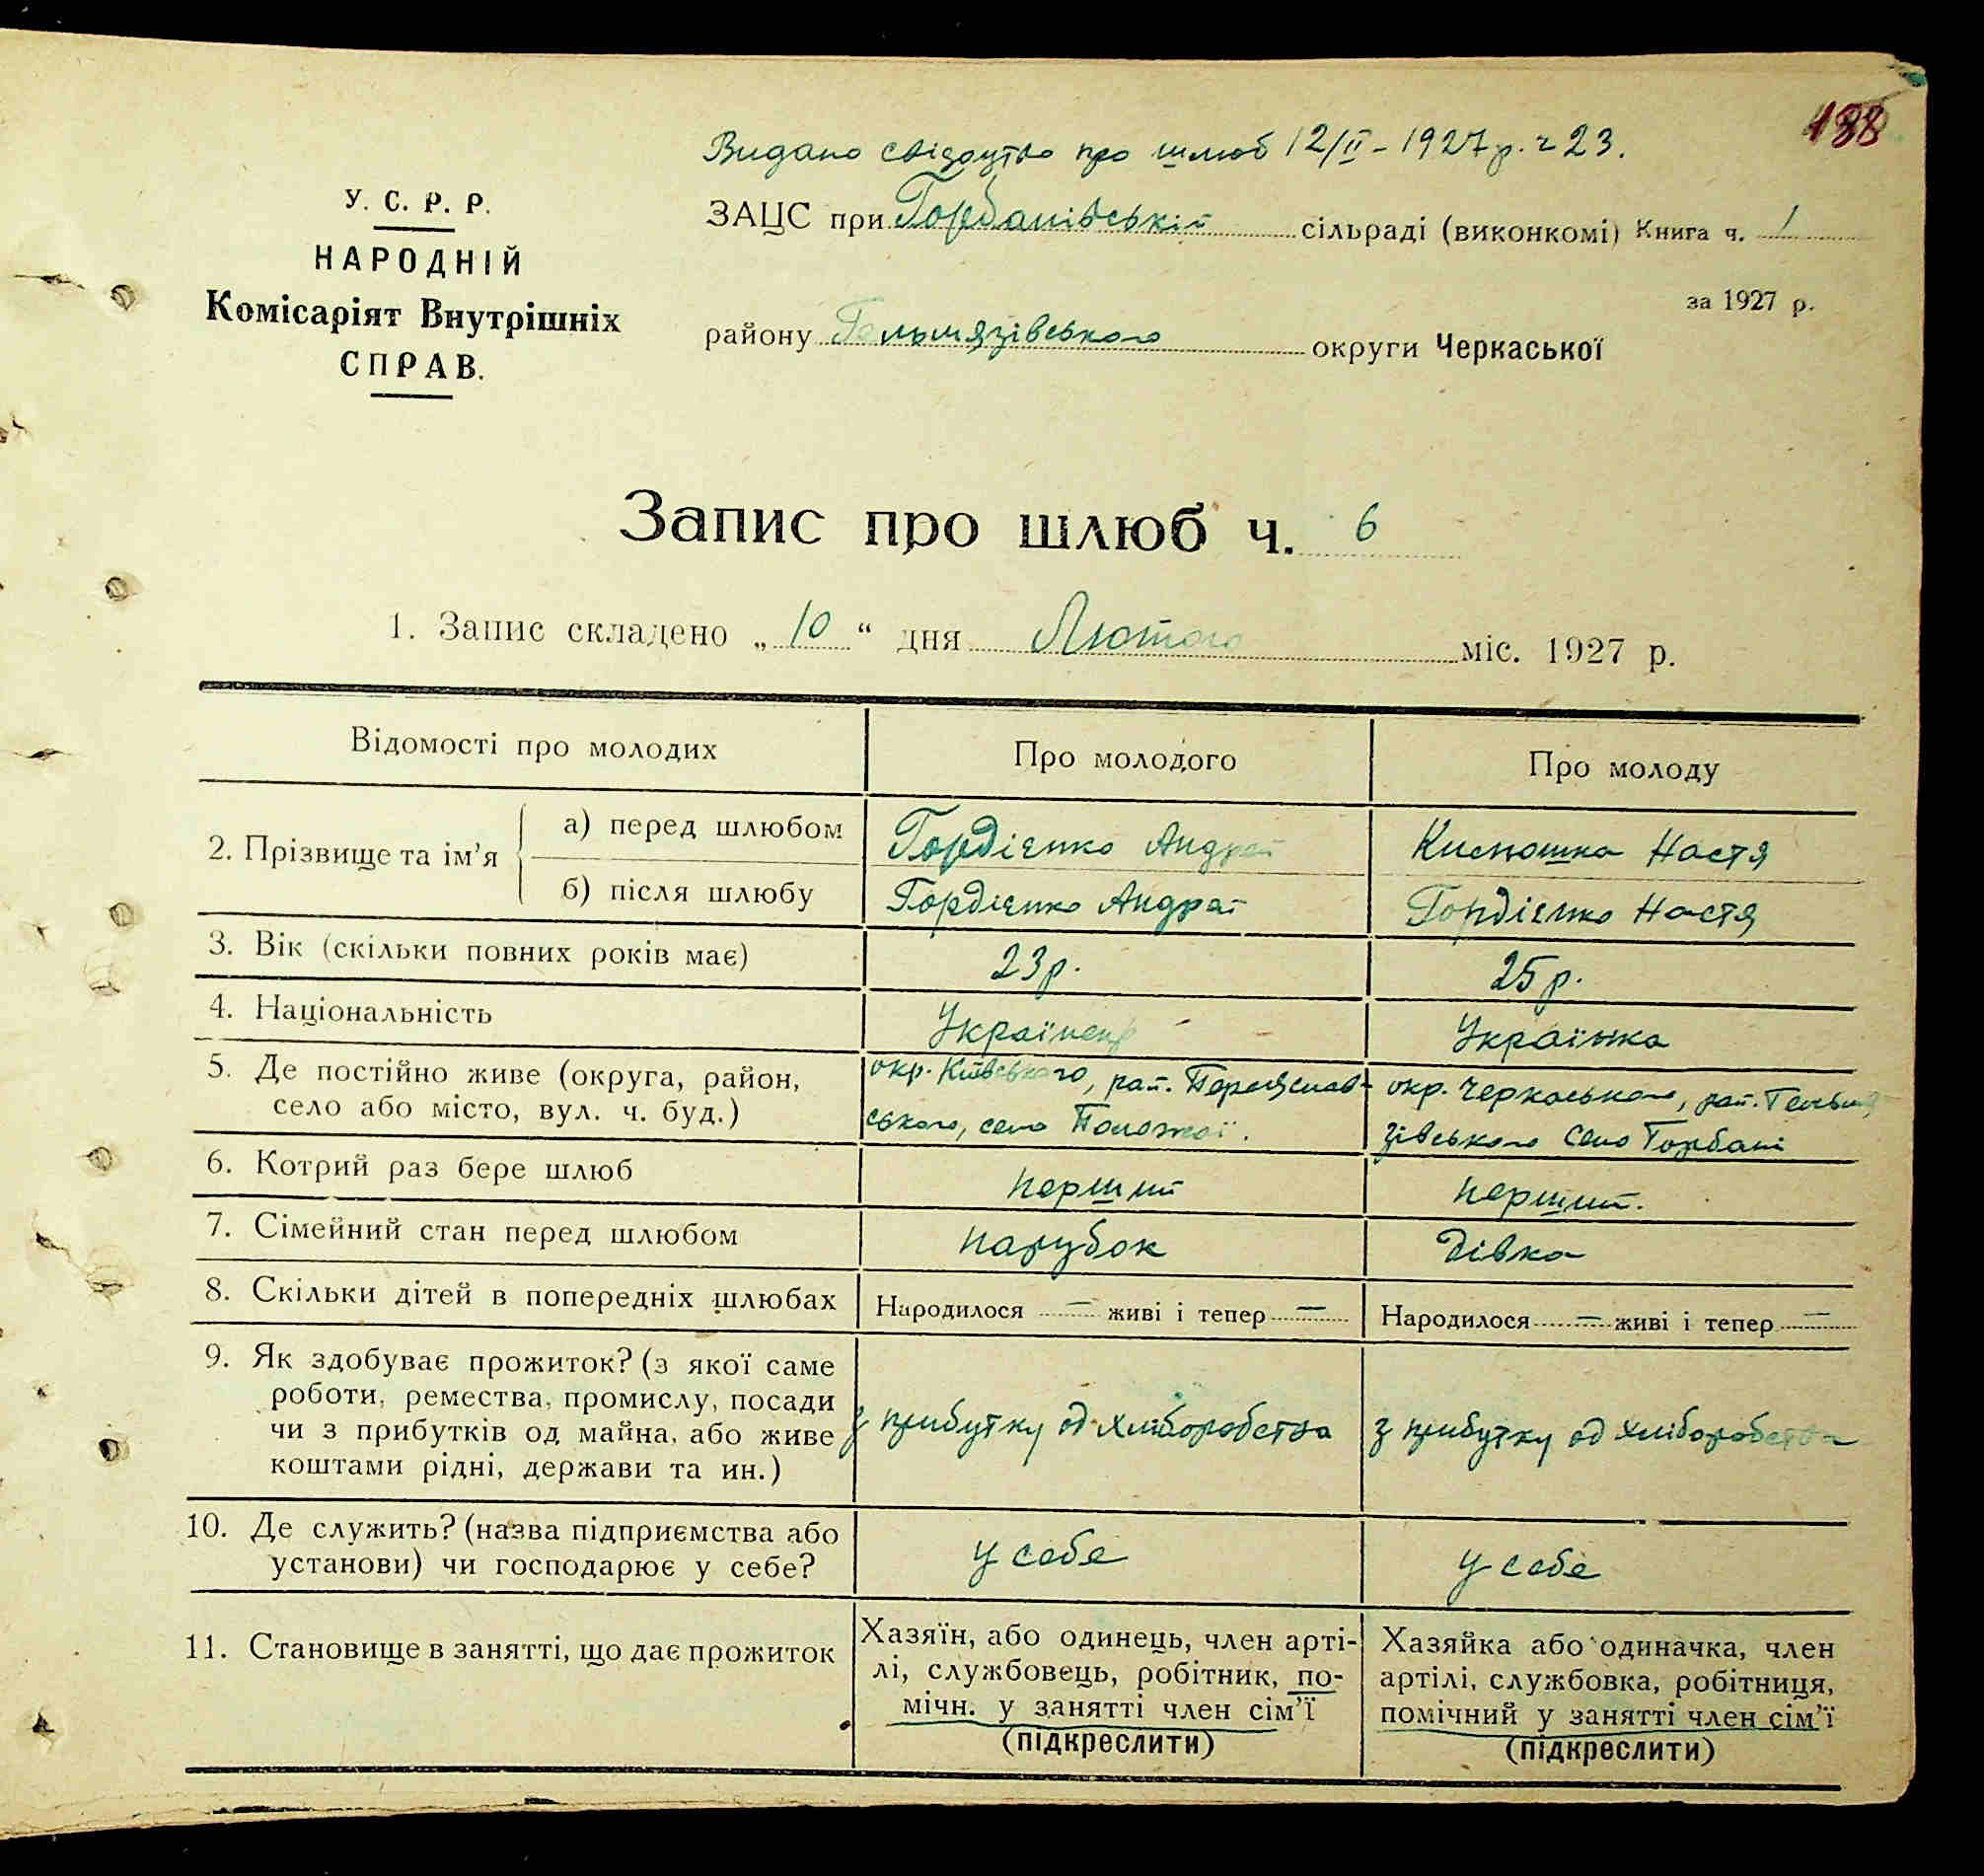 188
Видано свідоцтво про шлюб 12/II - 1927 р. ч 23.
У. С. Р. Р.
НАРОДНІЙ
Комісаріят Внутрішніх
СПРАВ.
ЗАЦС при Горбанівській сільраді (виконкомі) Книга ч. 1
за 1927 р.
району Гельмязівського округи Черкаської
Запис про шлюб ч. 6
1. Запис складено „10“ дня Лютого міс. 1927 р.
Відомості про молодих
Про молодого
Про молоду
2. Прізвище та ім’я
а) перед шлюбом
Гордієнко Андрай
Кисюшка Настя
б) після шлюбу
Гордієнко Андрай
Гордієнко Настя
3. Вік (скільки повних років має)
23 р.
25 р.
4. Національність
Українець
Українка
5. Де постійно живе (округа, район,
село або місто, вул. ч. буд.)
окр. Київського, рай. Переяслав-
ського, село Положаї.
окр. Черкаського, рай. Гельмя
зівського село Горбані
6. Котрий раз бере шлюб
перший
перший.
7. Сімейний стан перед шлюбом
парубок
Дівка
8. Скільки дітей в попередніх шлюбах
Народилося — живі і тепер —
Народилося — живі і тепер —
9. Як здобуває прожиток? (з якої саме
роботи, ремества, промислу, посади
чи з прибутків од майна, або живе
коштами рідні, держави та ин.)
з прибутку од хліборобства
з прибутку од хліборобства
10. Де служить? (назва підприємства або
установи) чи господарює у себе?
у себе
у себе
11. Становище в занятті, що дає прожиток
Хазяїн, або одинець, член арті-
лі, службовець, робітник, по-
мічн. у занятті член сім’ї
(підкреслити)
Хазяйка або одиначка, член
артілі, службовка, робітниця,
помічний у занятті член сім’ї
(підкреслити)